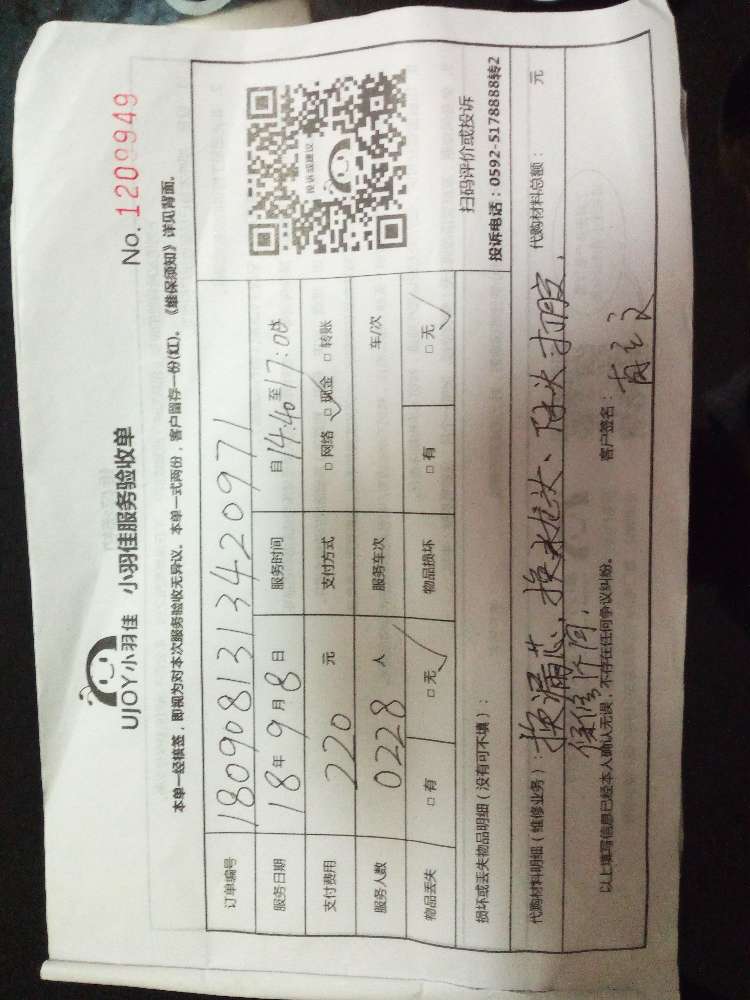 No. 1209949
UJOY小羽佳 小羽佳服务验收单
本单一经核签，即视为对本次服务验收无异议。本单一式两份，客户留存一份(红)。《维保须知》详见背面。
订单编号 180908131342097 1
服务日期 18年9月8日 服务时间 自14:40至17:00
支付费用 220元 支付方式 □网络 □现金 □转账
服务人数 0228人 服务车次 车/次
物品丢失 □有 □无 物品损坏 □有 □无
投诉或建议
扫码评价或投诉
投诉电话：0592-5178888转2
损坏或丢失物品明细（没有可不填）：
代购材料明细（维修业务）：换漏芯，换水龙头、 打胶， 代购材料总额： 元
以上填写信息已经本人确认无误，不存在任何争议纠纷。 客户签名：